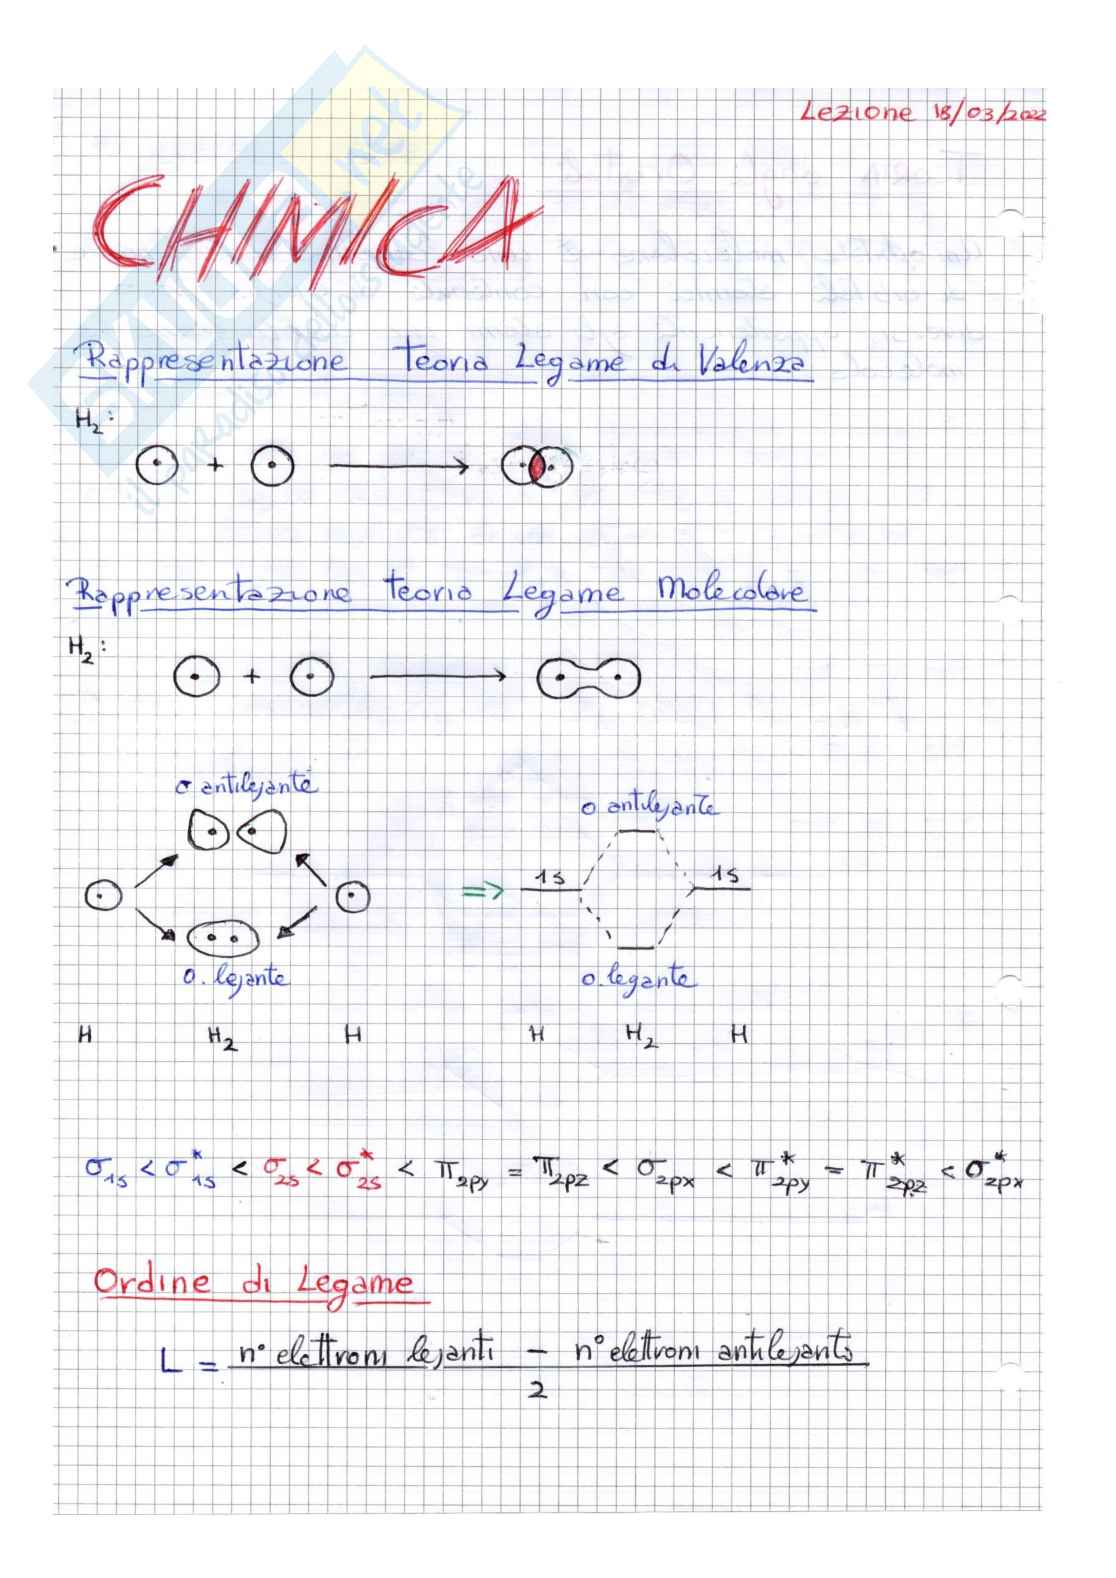 Lezione 18/03/2022
CHIMICA
Rappresentazione teoria Legame di Valenza
H₂:
+
Rappresentazione teoria Legame Molecolare
H₂:
+
σ antilegante
o antilegante
1s 1s
o. legante
o. legante
H H₂ H H H₂ H
σ₁ₛ < σ*₁ₛ < σ₂ₛ < σ*₂ₛ < π₂py = π₂pz < σ₂px < π*₂py = π*₂pz < σ*₂px
Ordine di Legame
L = n° elettroni leganti - n° elettroni antileganti
2